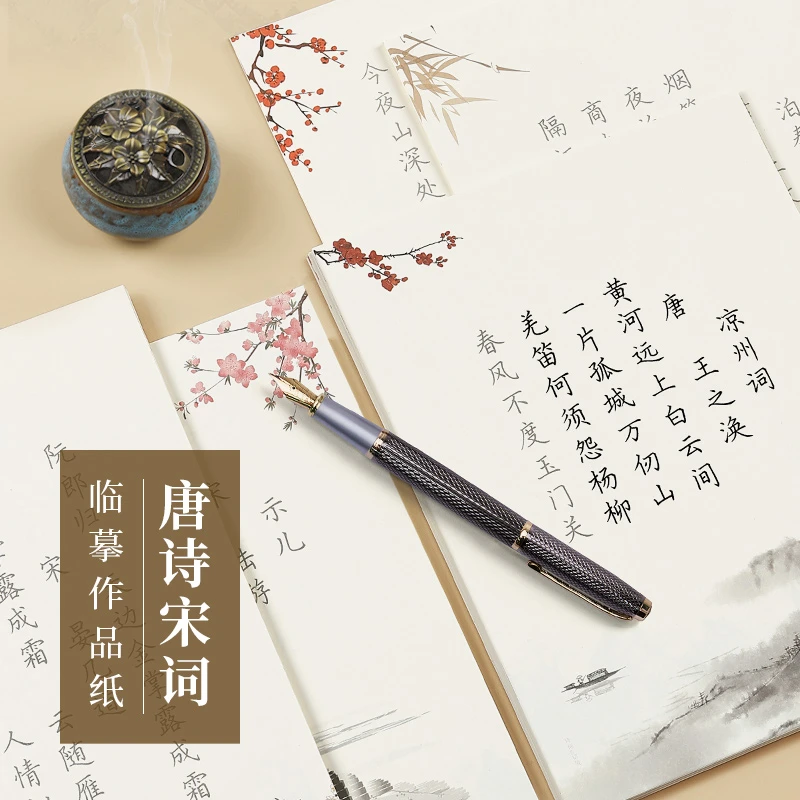 唐诗宋词
临摹作品纸
凉州词
唐 王之涣
黄河远上白云间
一片孤城万仞山
羌笛何须怨杨柳
春风不度玉门关
今夜山深处
烟
夜
商
隔
泊
示儿
宋
阮郎归
宋 晏几道
天边金掌露成霜
云随雁
露成霜
人情